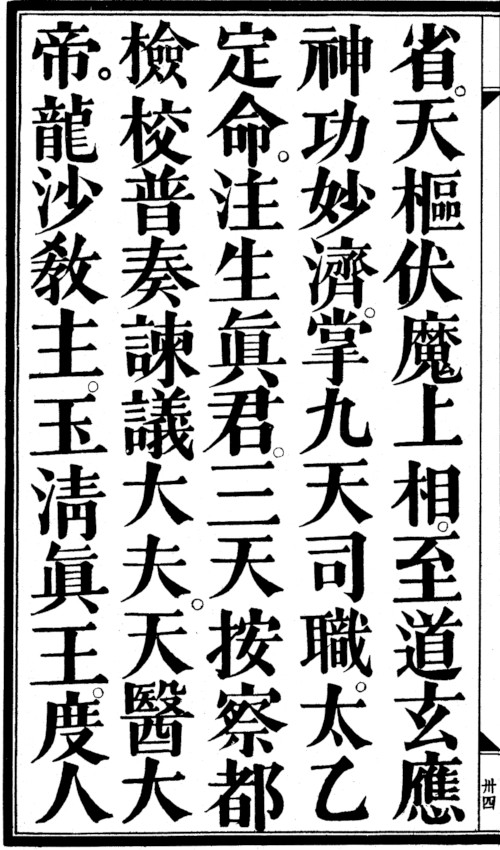 省。天樞伏魔上相。至道玄應
神功妙濟。掌九天司職。太乙
定命。注生眞君。三天按察都
檢校普奏諫議大夫。天醫大
帝。龍沙教主。玉清眞王。度人
卅四